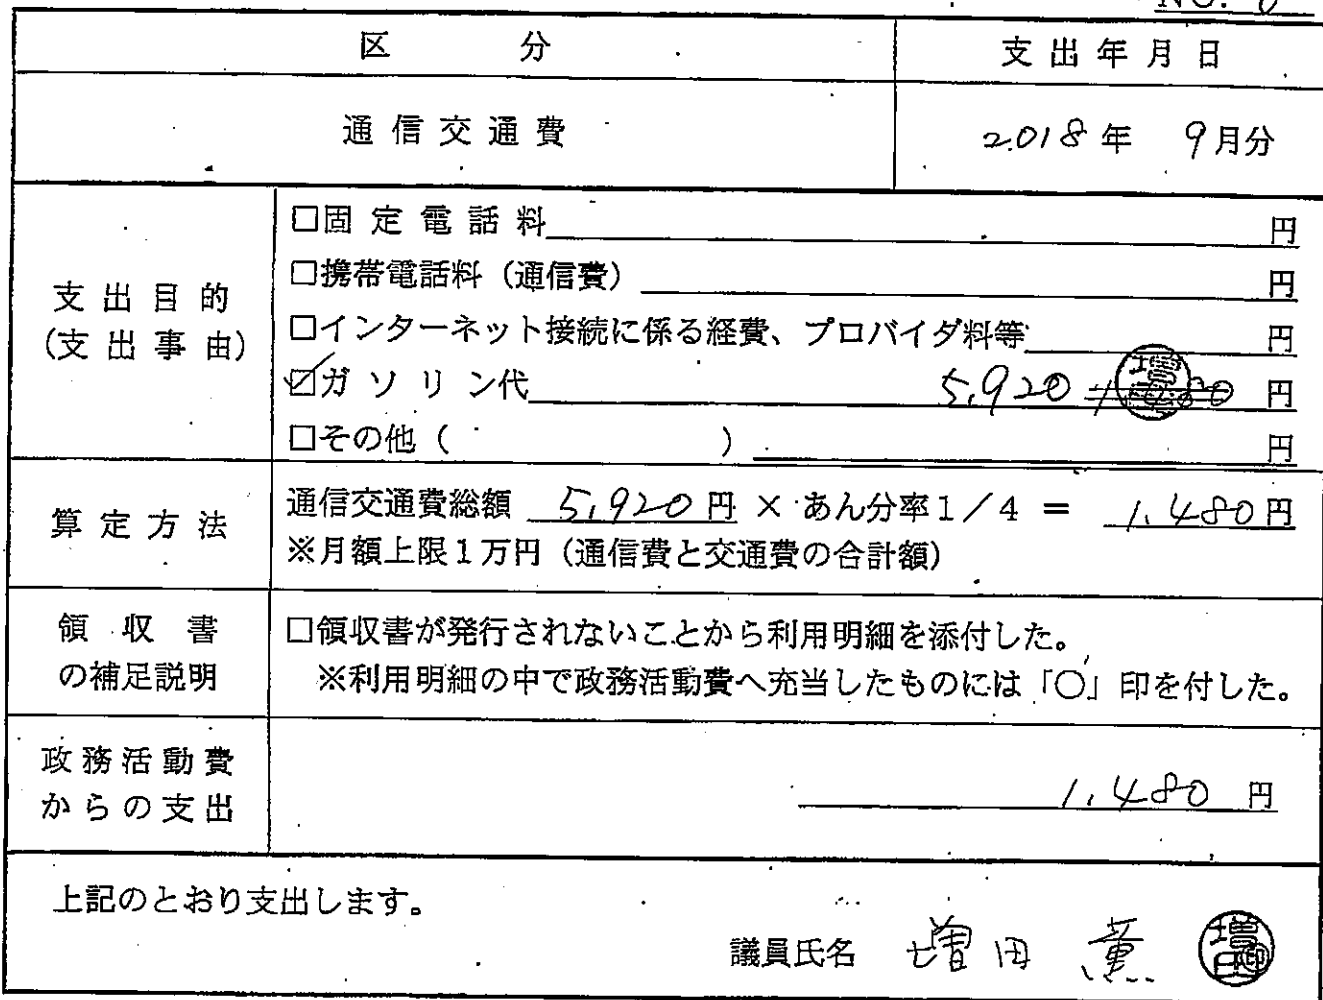 区 分 支出年月日
通信交通費 2018年 9月分
支出目的
(支出事由)
□固定電話料 円
□携帯電話料(通信費) 円
□インターネット接続に係る経費、プロバイダ料等 円
☑ガソリン代 5,920 円
□その他( ) 円
算定方法
通信交通費総額 5,920円 × あん分率1/4 = 1,480円
※月額上限1万円(通信費と交通費の合計額)
領収書
の補足説明
□領収書が発行されないことから利用明細を添付した。
※利用明細の中で政務活動費へ充当したものには「○」印を付した。
政務活動費
からの支出
1,480 円
上記のとおり支出します。
議員氏名 増田 薫